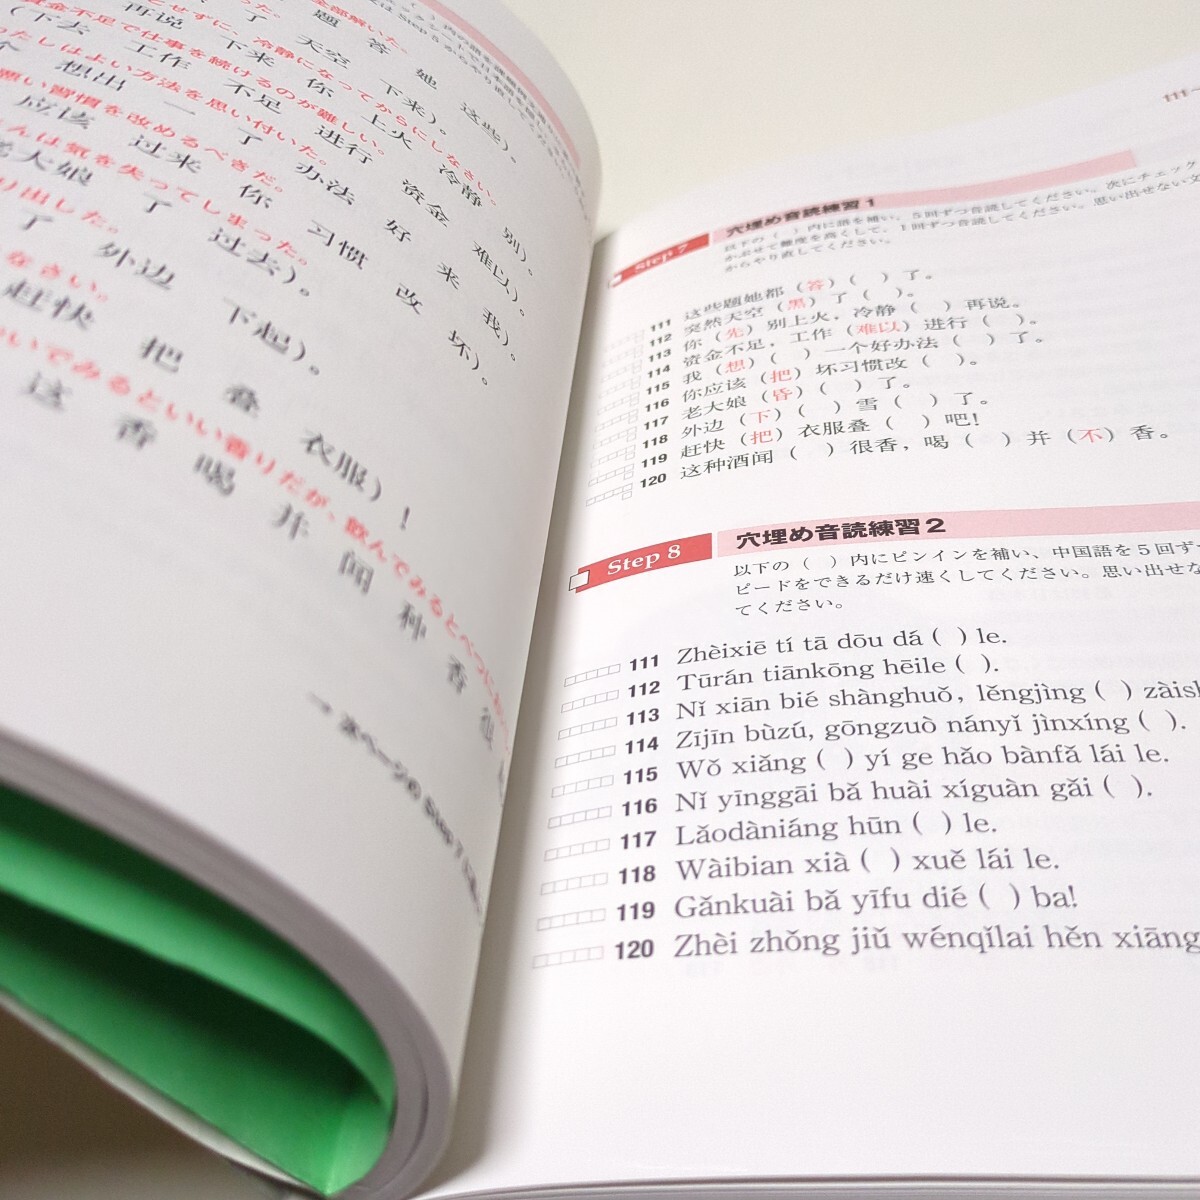 全部解いた。
了 题 答 她 这些）。
再说 下来 你 上火 冷静 别）。
（下去 工作 不足 进行 资金 难以）。
わたしはよい方法を思い付いた。
想出 一 了 办法 好 来 我）。
悪い習慣を改めるべきだ。
应该 过来 你 习惯 改 坏）。
さんは気を失ってしまった。
老大娘 了 过去）。
り出した。
了 外边 下起）。
なさい。
赶快 把 叠 衣服）！
いでみるといい香りだが、飲んでみるとべつに
这 香 喝 并 闻 种 香
→ 次ページの Step 7
Step 7 穴埋め音読練習 1
以下の（ ）内に語を補い、5回ずつ音読してください。次にチェック
かぶせて難度を高くして、1回ずつ音読してください。思い出せない文
からやり直してください。
111 这些题她都（答）（ ）了。
112 突然天空（黑）了（ ）。
113 你（先）别上火，冷静（ ）再说。
114 资金不足，工作（难以）进行（ ）。
115 我（想）（ ）一个好办法（ ）了。
116 你应该（把）坏习惯改（ ）。
117 老大娘（昏）（ ）了。
118 外边（下）（ ）雪（ ）了。
119 赶快（把）衣服叠（ ）吧!
120 这种酒闻（ ）很香，喝（ ）并（不）香。
Step 8 穴埋め音読練習 2
以下の（ ）内にピンインを補い、中国語を5回ずつ
ピードをできるだけ速くしてください。思い出せな
てください。
111 Zhèixiē tí tā dōu dá ( ) le.
112 Tūrán tiānkōng hēile ( ).
113 Nǐ xiān bié shànghuǒ, lěngjìng ( ) zàish
114 Zījīn bùzú, gōngzuò nányǐ jìnxíng ( ).
115 Wǒ xiǎng ( ) yí ge hǎo bànfǎ lái le.
116 Nǐ yīnggāi bǎ huài xíguàn gǎi ( ).
117 Lǎodàniáng hūn ( ) le.
118 Wàibian xià ( ) xuě lái le.
119 Gǎnkuài bǎ yīfu dié ( ) ba!
120 Zhèi zhǒng jiǔ wénqǐlai hěn xiāng